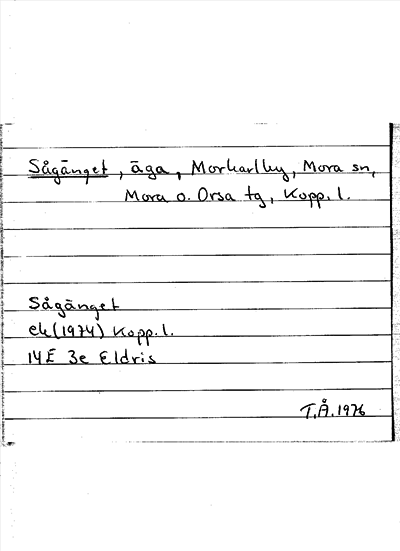 Sågänget, äga, Morkarlby, Mora sn,
Mora o. Orsa tg, Kopp. l.
Sågänget
ek (1974) Kopp. l.
14E 3e Eldris
T.Å. 1976